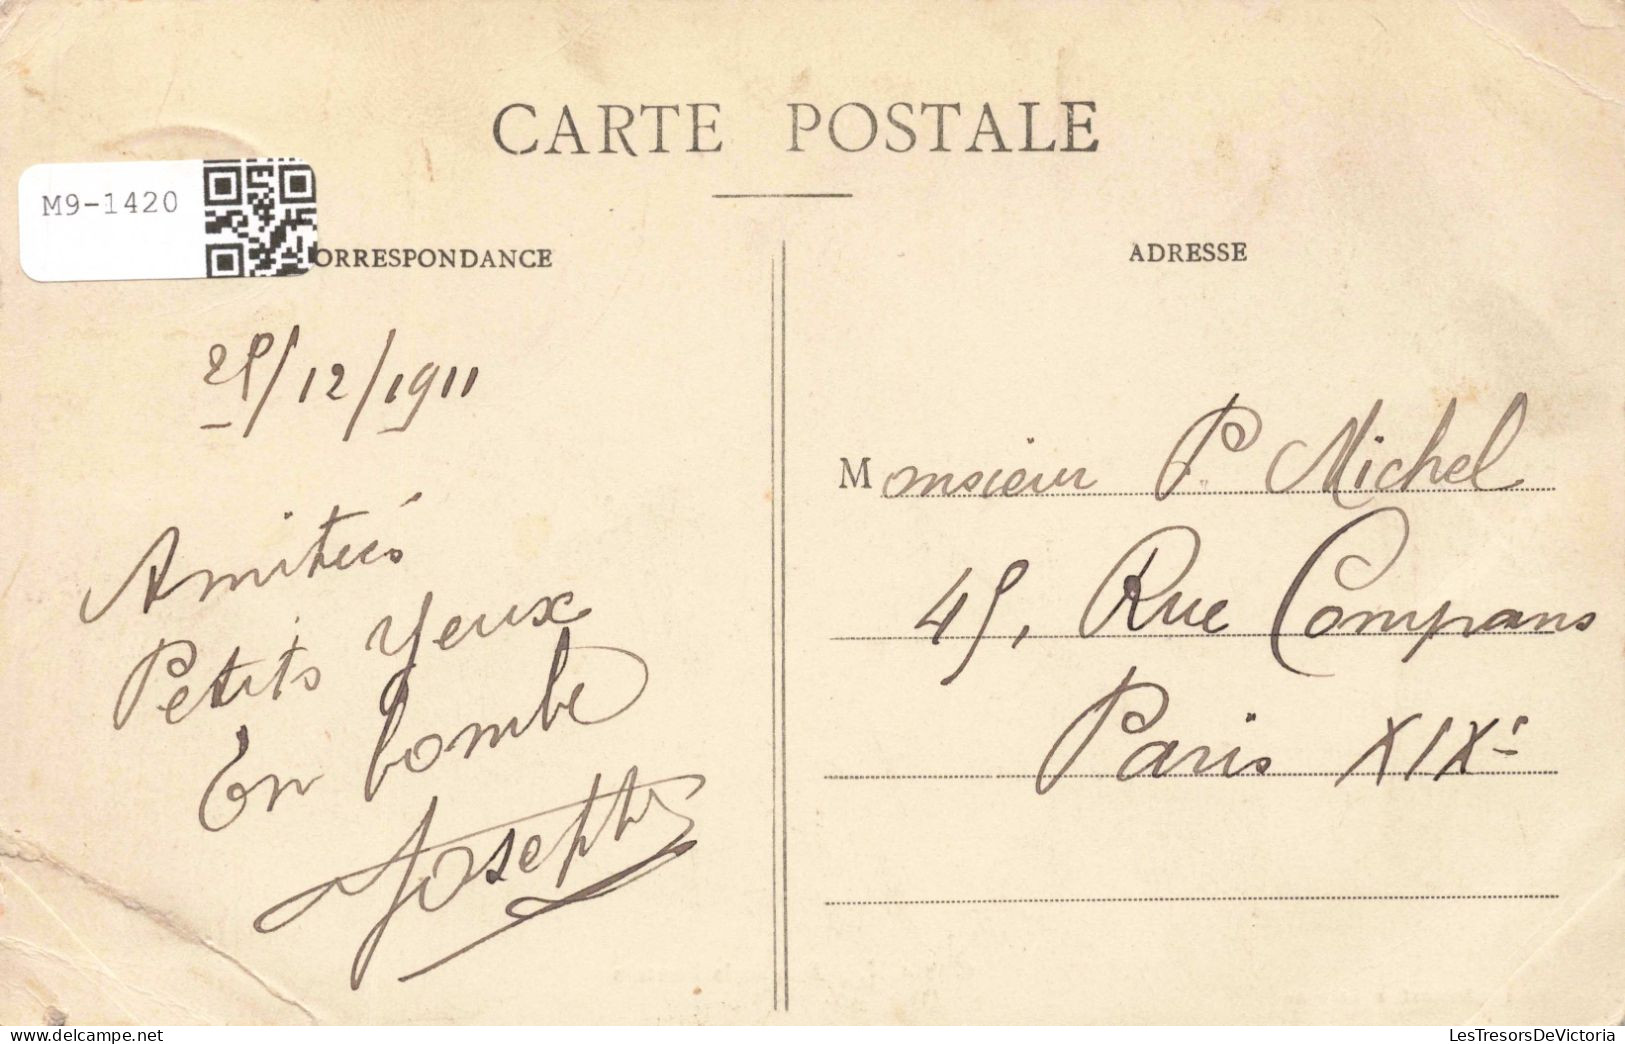 CARTE POSTALE
M9-1420
ORRESPONDANCE
25/12/1911
Amitiés
Petits Yeux
En bombe
Joseph
ADRESSE
Monsieur P. Michel
45, Rue Compans
Paris XIXe
LesTresorsDeVictoria
www.delcampe.net